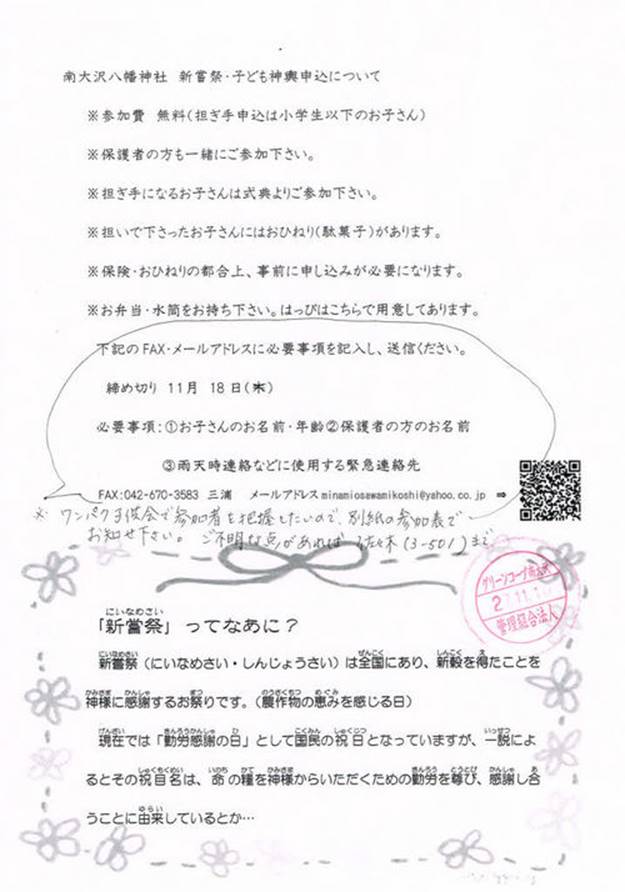 南大沢八幡神社 新嘗祭・子ども神輿申込について
※参加費 無料(担ぎ手申込は小学生以下のお子さん)
※保護者の方も一緒にご参加下さい。
※担ぎ手になるお子さんは式典よりご参加下さい。
※担いで下さったお子さんにはおひねり(駄菓子)があります。
※保険・おひねりの都合上、事前に申し込みが必要になります。
※お弁当・水筒をお持ち下さい。はっぴはこちらで用意してあります。
下記のFAX・メールアドレスに必要事項を記入し、送信ください。
締め切り 11月 18日(木)
必要事項:①お子さんのお名前・年齢②保護者の方のお名前
③雨天時連絡などに使用する緊急連絡先
FAX:042-670-3583 三浦 メールアドレスminamiosawamikoshi@yahoo.co.jp ⇒
※ ワンパク子供会で参加者を把握したいので、別紙の参加表で
お知せ下さい。 ご不明な点があれば 佐々木(3-501)まで
グリーンコープ南大沢
管理組合法人
にいなめさい
「新嘗祭」ってなあに?
にいなめさい ぜんこく しんこく え
新嘗祭(にいなめさい・しんじょうさい)は全国にあり、新穀を得たことを
かみさま かんしゃ まつ のうさくもつ めぐみ かん ひ
神様に感謝するお祭りです。(農作物の恵みを感じる日)
げんざい きんろうかんしゃ ひ こくみん しゅくじつ いっせつ
現在では「勤労感謝の日」として国民の祝日となっていますが、一説によ
しゅくもくめい いのち かて かみさま きんろう とうとび かんしゃ あ
るとその祝目名は、命の糧を神様からいただくための勤労を尊び、感謝し合
ゆらい
うことに由来しているとか…